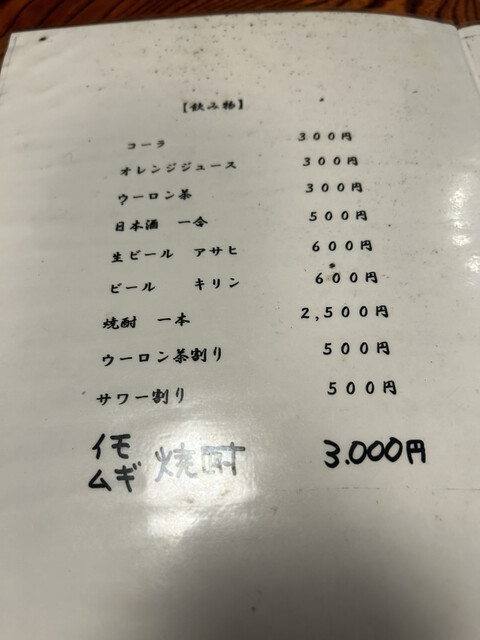 【飲み物】
コーラ 300円
オレンジジュース 300円
ウーロン茶 300円
日本酒 一合 500円
生ビール アサヒ 600円
ビール キリン 600円
焼酎 一本 2,500円
ウーロン茶割り 500円
サワー割り 500円
イモ
ムギ 焼酎 3.000円